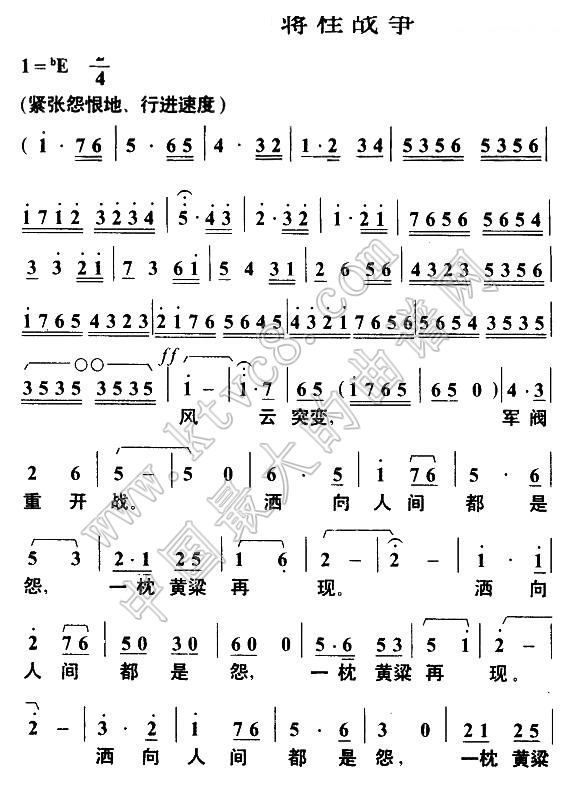 将性战争
1=♭E 2/4
(紧张怨恨地、行进速度)
( i · 7 6 | 5 · 6 5 | 4 · 3 2 | 1 · 2 3 4 | 5 3 5 6 5 3 5 6
1 7 1 2 3 2 3 4 | 5 · 4 3 | 2 · 3 2 | 1 · 2 1 | 7 6 5 6 5 6 5 4
3 3 2 1 | 7 3 6 1 | 5 4 3 1 | 2 5 6 | 4 3 2 3 5 3 2 3
1 7 6 5 4 3 2 3 | 2 1 7 6 5 6 4 5 | 4 3 2 1 7 6 5 6 | 5 6 5 4 3 5 3 5
ff
3 5 3 5 3 5 3 5 | i – | i · 7 | 6 5 ( i 7 6 5 | 6 5 0 ) | 4 · 3
风 云 突变, 军阀
2 6 | 5 – | 5 0 | 6 · 5 | i 7 6 | 5 · 5
重开战。 洒向人间都是
5 3 | 2 · 1 2 5 | 1 6 | 2 – | 2 – | i · i
怨, 一枕黄粱再现。 洒向
2 7 6 | 5 0 3 0 | 6 0 0 | 5 · 6 5 3 | 5 i | 2 –
人间都是怨, 一枕黄粱再现。
2 – | 3 · 2 | i 7 6 | 5 · 6 | 3 0 | 2 1 2 5
洒向人间都是怨, 一枕黄粱
www.ktvc8.com
中国最大的曲谱网